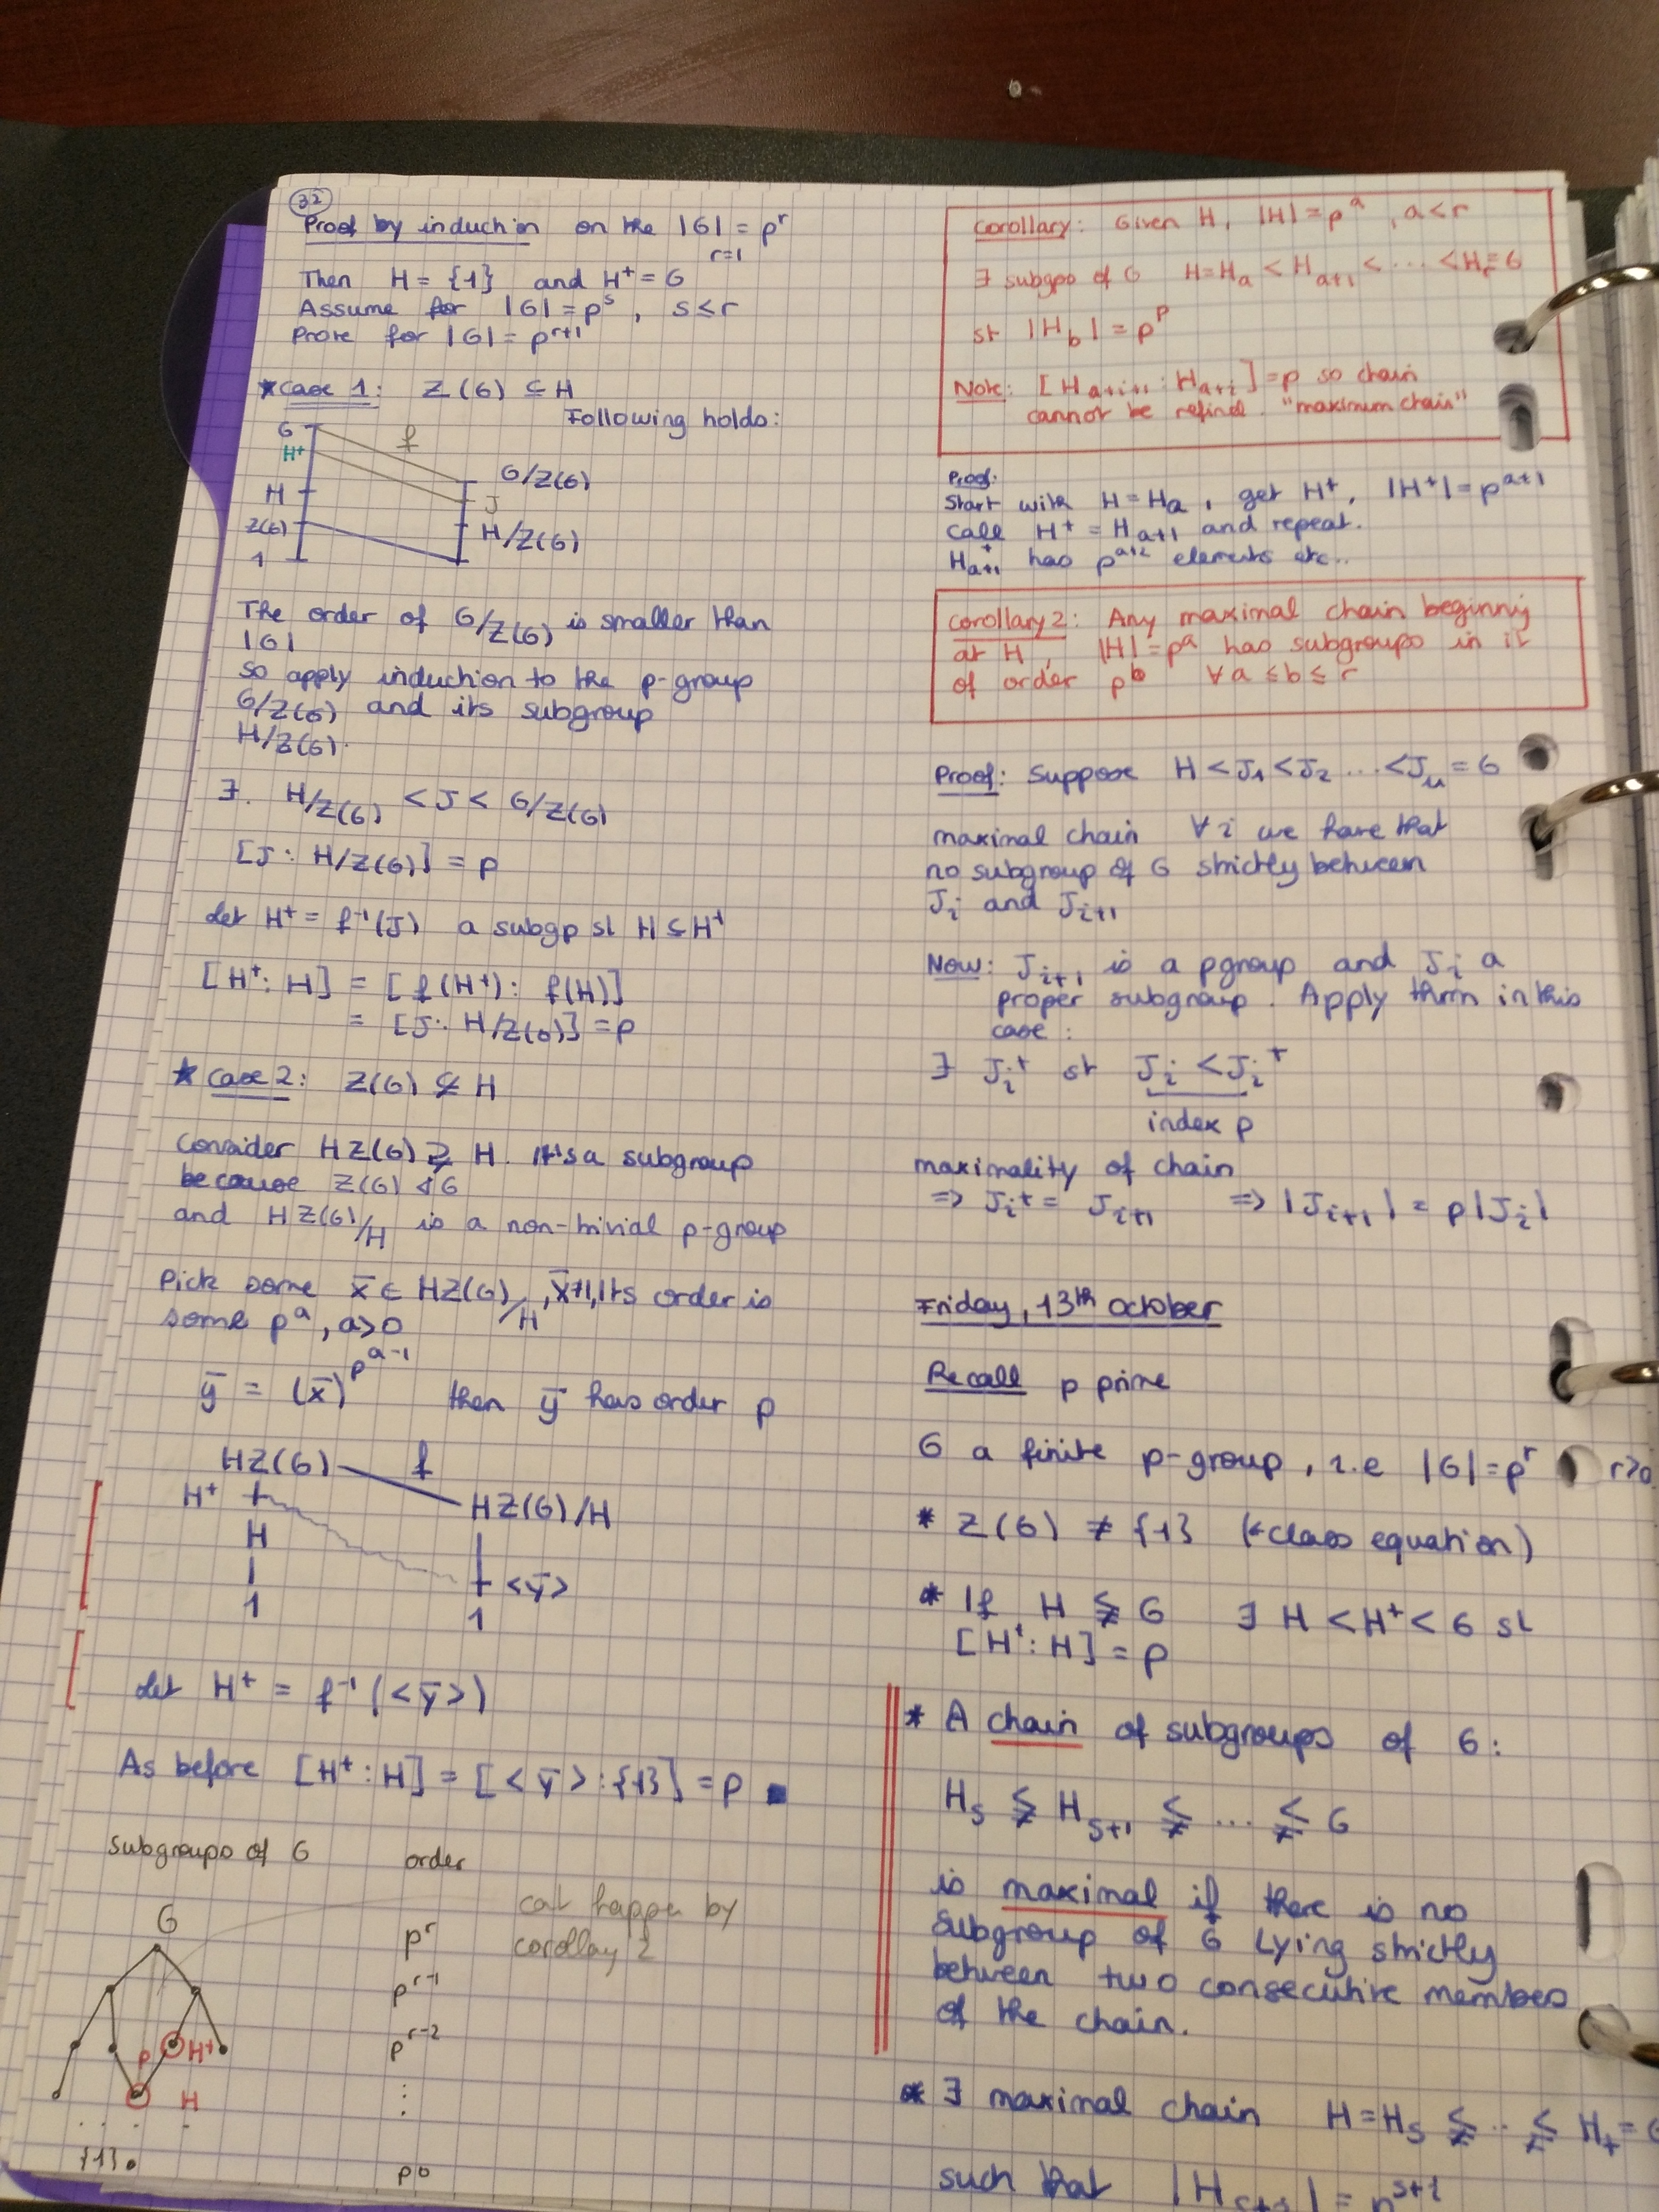 32
Proof by induction on the |G| = p^r
r=1
Then H = {1} and H⁺ = G
Assume for |G| = p^s, s ≤ r
Prove for |G| = p^{r+1}
* Case 1: Z(G) ⊆ H
Following holds:
G
f
H⁺
G/Z(G)
J
H
Z(G)
H/Z(G)
1
The order of G/Z(G) is smaller than
|G|
so apply induction to the p-group
G/Z(G) and its subgroup
H/Z(G).
∃. H/Z(G) < J < G/Z(G)
[J : H/Z(G)] = p
Let H⁺ = f⁻¹(J) a subgp st H ⊆ H⁺
[H⁺ : H] = [f(H⁺) : f(H)]
= [J : H/Z(G)] = p
* Case 2: Z(G) ⊄ H
Consider HZ(G) ⊋ H. It's a subgroup
because Z(G) ⊲ G
and HZ(G)/H is a non-trivial p-group
Pick some x̄ ∈ HZ(G)/H, x̄≠1, its order is
some p^a, a>0
ȳ = (x̄)^{p^{a-1}} then ȳ has order p
HZ(G) f
H⁺
HZ(G)/H
H
<ȳ>
1
1
Let H⁺ = f⁻¹(<ȳ>)
As before [H⁺ : H] = [<ȳ> : {1}] = p ■
Subgroups of G order
cat happen by
G
p^r
corollay 2
p^{r-1}
p^{r-2}
p H⁺
H
⋮
. . . . .
{1}
p^0
Corollary: Given H, |H| = p^a, a < r
∃ subgps of G H = H_a < H_{a+1} < ... < H_r = G
st |H_b| = p^p
Note: [H_{a+i+1} : H_{a+i}] = p so chain
cannot be refined. "maximum chain"
Proof:
Start with H = H_a, get H⁺, |H⁺| = p^{a+1}
call H⁺ = H_{a+1} and repeat.
H⁺_{a+1} has p^{a+2} elements etc..
Corollary 2: Any maximal chain beginnig
at H, |H| = p^a has subgroups in it
of order p^b ∀ a ≤ b ≤ r
Proof: Suppose H < J_1 < J_2 ... < J_u = G
maximal chain ∀ i we have that
no subgroup of G strictly between
J_i and J_{i+1}
Now: J_{i+1} is a pgroup and J_i a
proper subgroup. Apply thrm in this
case:
∃ J_i⁺ st J_i < J_i⁺
index p
maximality of chain
=> J_i⁺ = J_{i+1} => |J_{i+1}| = p|J_i|
Friday, 13th October
Recall p prime
G a finite p-group, i.e |G| = p^r r>0
* Z(G) ≠ {1} (* class equation)
* If H ⪇ G ∃ H < H⁺ < G st
[H⁺ : H] = p
* A chain of subgroups of G:
H_s ⪇ H_{s+1} ⪇ ... ⪇ G
is maximal if there is no
subgroup of G lying strictly
between two consecutive members
of the chain.
* ∃ maximal chain H = H_s ⪇ .. ⪇ H_t = G
such that |H_{s+i}| = p^{s+i}